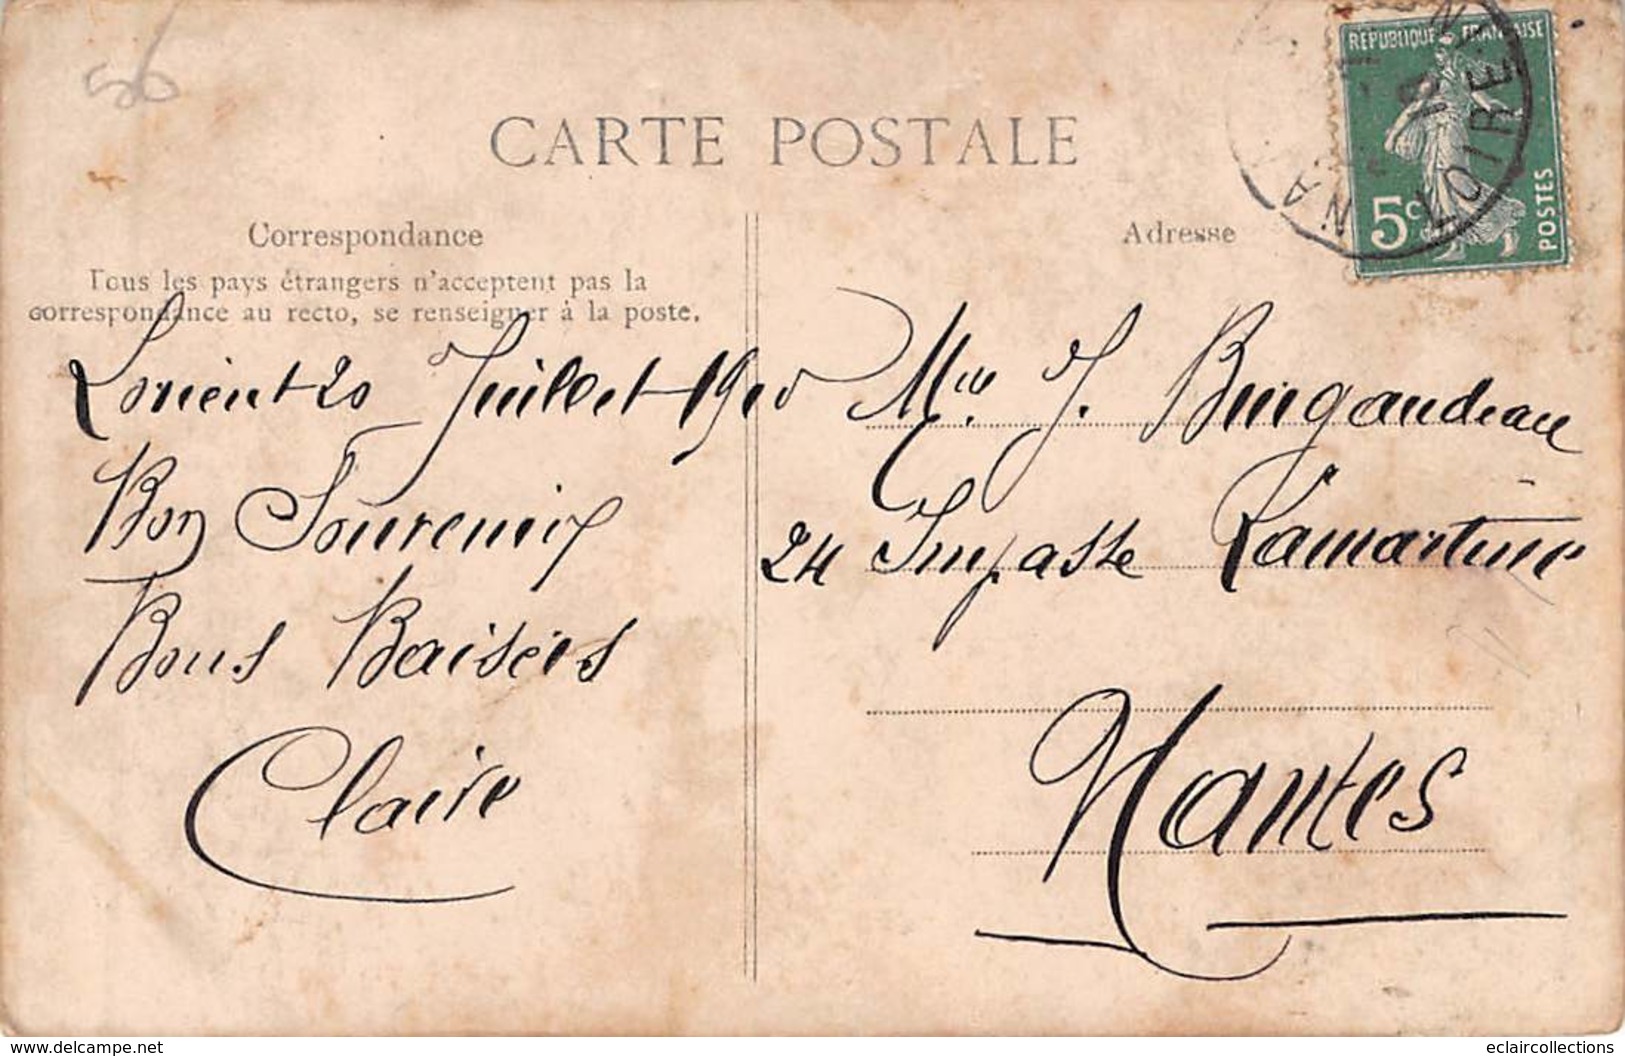 56
CARTE POSTALE
Correspondance
Tous les pays étrangers n'acceptent pas la
correspondance au recto, se renseigner à la poste.
Lorient 20 Juillet 1910
Bon Souvenir
Bons Baisers
Claire
Adresse
REPUBLIQUE FRANÇAISE
5c
POSTES
LOIRE
J. Bingaudeau
24 Impasse Lamartine
Nantes
www.delcampe.net
eclaircollections